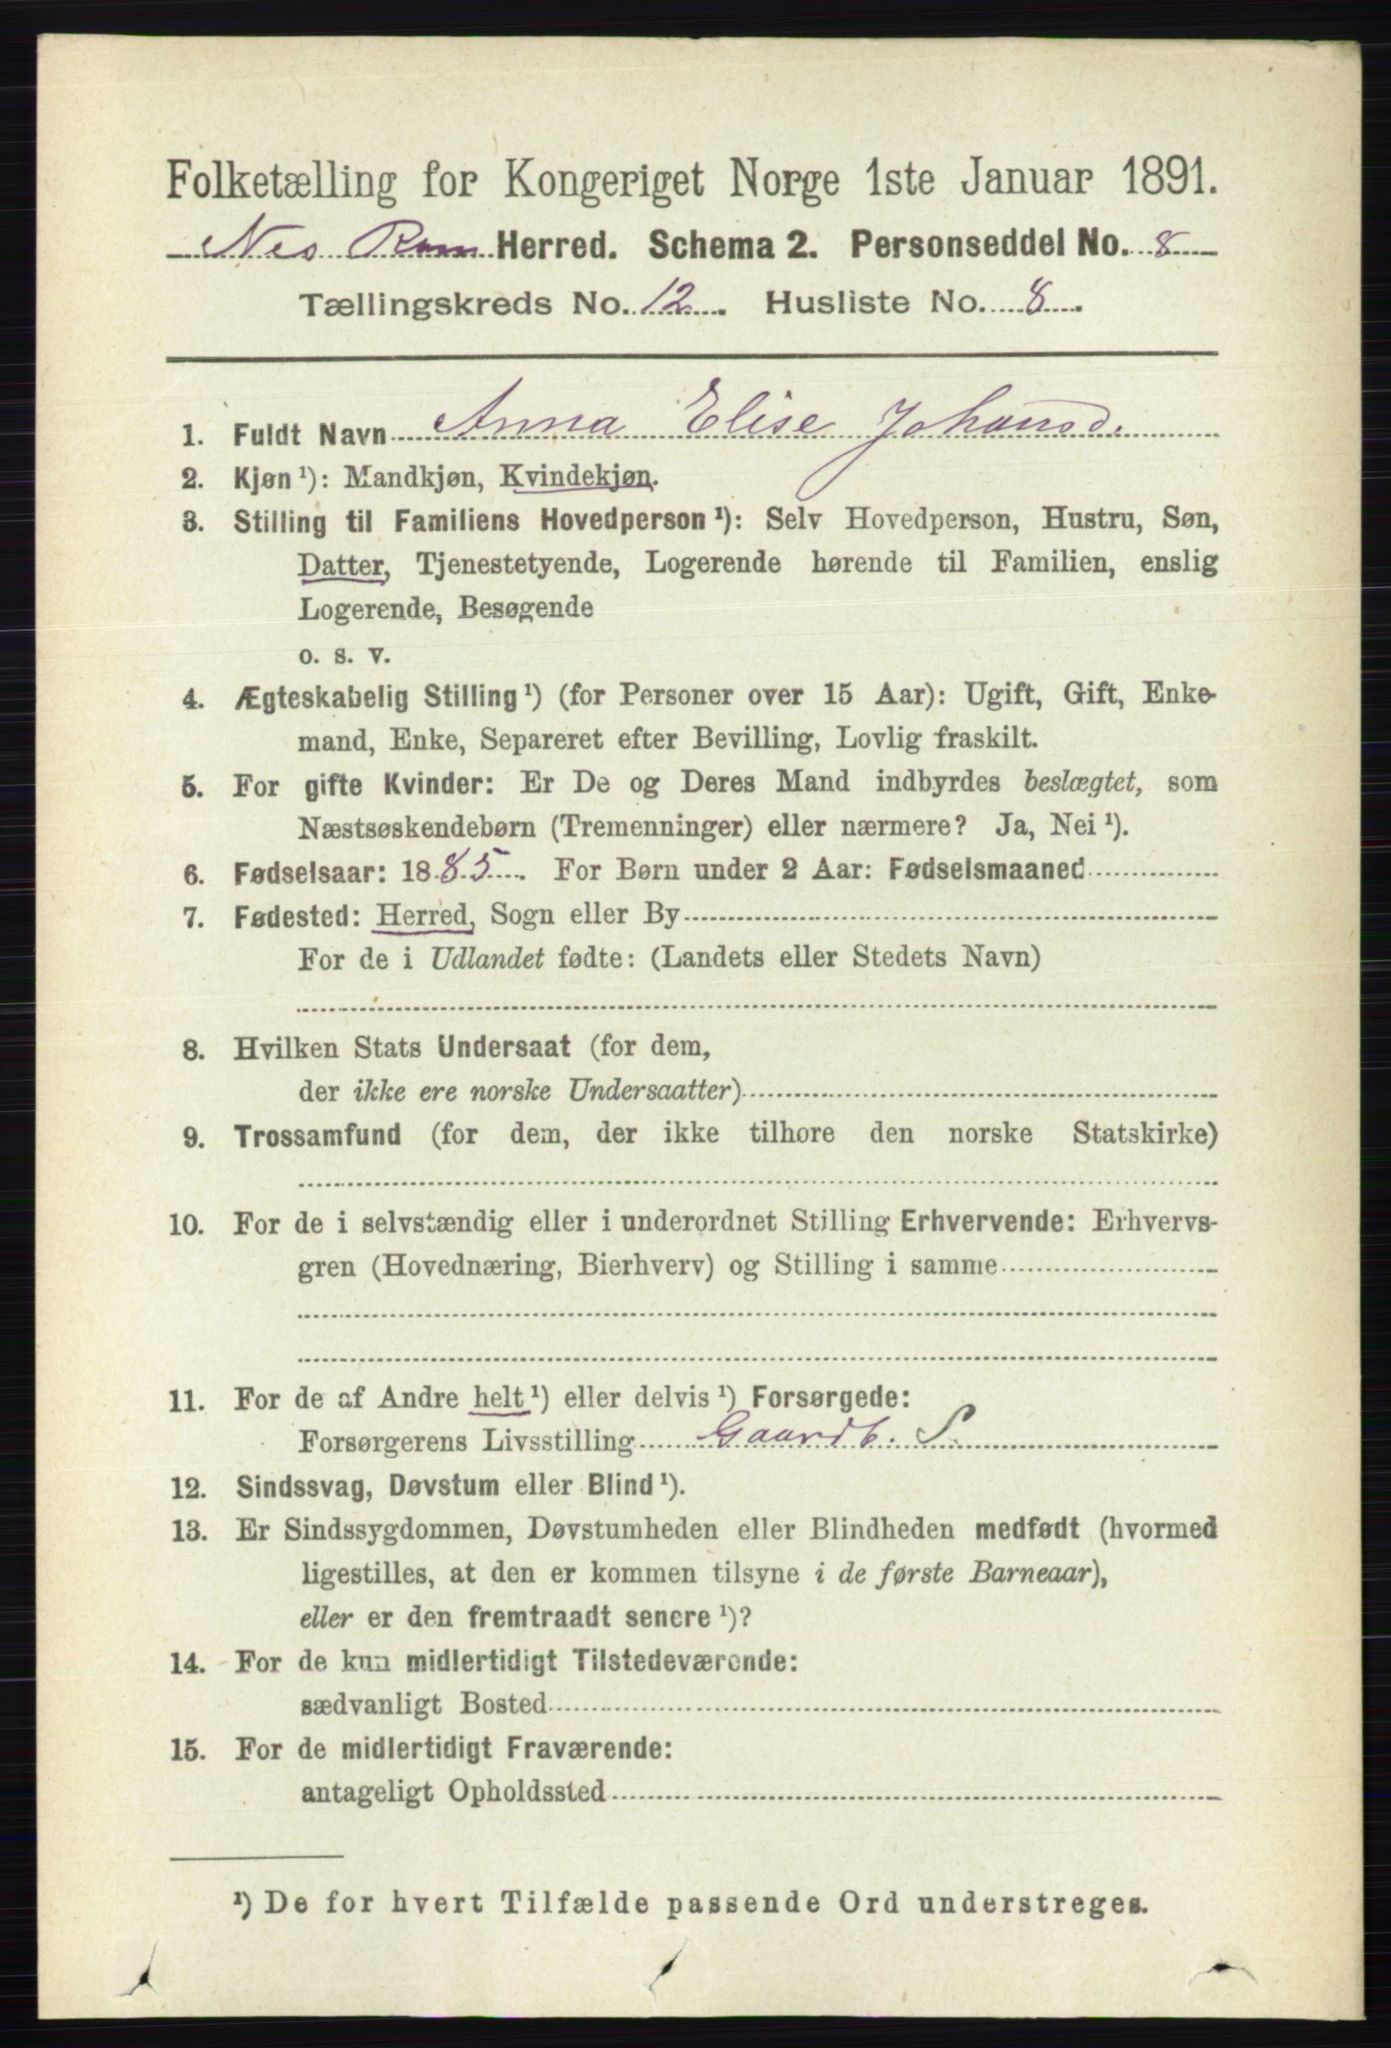 Folketælling for Kongeriget Norge 1ste Januar 1891.
Nes Rom Herred. Schema 2. Personseddel No. 8
Tællingskreds No. 12. Husliste No. 8.
1. Fuldt Navn Anna Elise Johansd.
2. Kjøn ¹): Mandkjøn, Kvindekjøn.
3. Stilling til Familiens Hovedperson ¹): Selv Hovedperson, Hustru, Søn,
Datter, Tjenestetyende, Logerende hørende til Familien, enslig
Logerende, Besøgende
o. s. v.
4. Ægteskabelig Stilling ¹) (for Personer over 15 Aar): Ugift, Gift, Enke-
mand, Enke, Separeret efter Bevilling, Lovlig fraskilt.
5. For gifte Kvinder: Er De og Deres Mand indbyrdes beslægtet, som
Næstsøskendebørn (Tremenninger) eller nærmere? Ja, Nei ¹).
6. Fødselsaar: 1885. For Børn under 2 Aar: Fødselsmaaned
7. Fødested: Herred, Sogn eller By
For de i Udlandet fødte: (Landets eller Stedets Navn)
8. Hvilken Stats Undersaat (for dem,
der ikke ere norske Undersaatter)
9. Trossamfund (for dem, der ikke tilhøre den norske Statskirke)
10. For de i selvstændig eller i underordnet Stilling Erhvervende: Erhvervs-
gren (Hovednæring, Bierhverv) og Stilling i samme
11. For de af Andre helt ¹) eller delvis ¹) Forsørgede:
Forsørgerens Livsstilling Gaardb. S.
12. Sindssvag, Døvstum eller Blind ¹).
13. Er Sindssygdommen, Døvstumheden eller Blindheden medfødt (hvormed
ligestilles, at den er kommen tilsyne i de første Barneaar),
eller er den fremtraadt senere ¹)?
14. For de kun midlertidigt Tilstedeværende:
sædvanligt Bosted
15. For de midlertidigt Fraværende:
antageligt Opholdssted
¹) De for hvert Tilfælde passende Ord understreges.